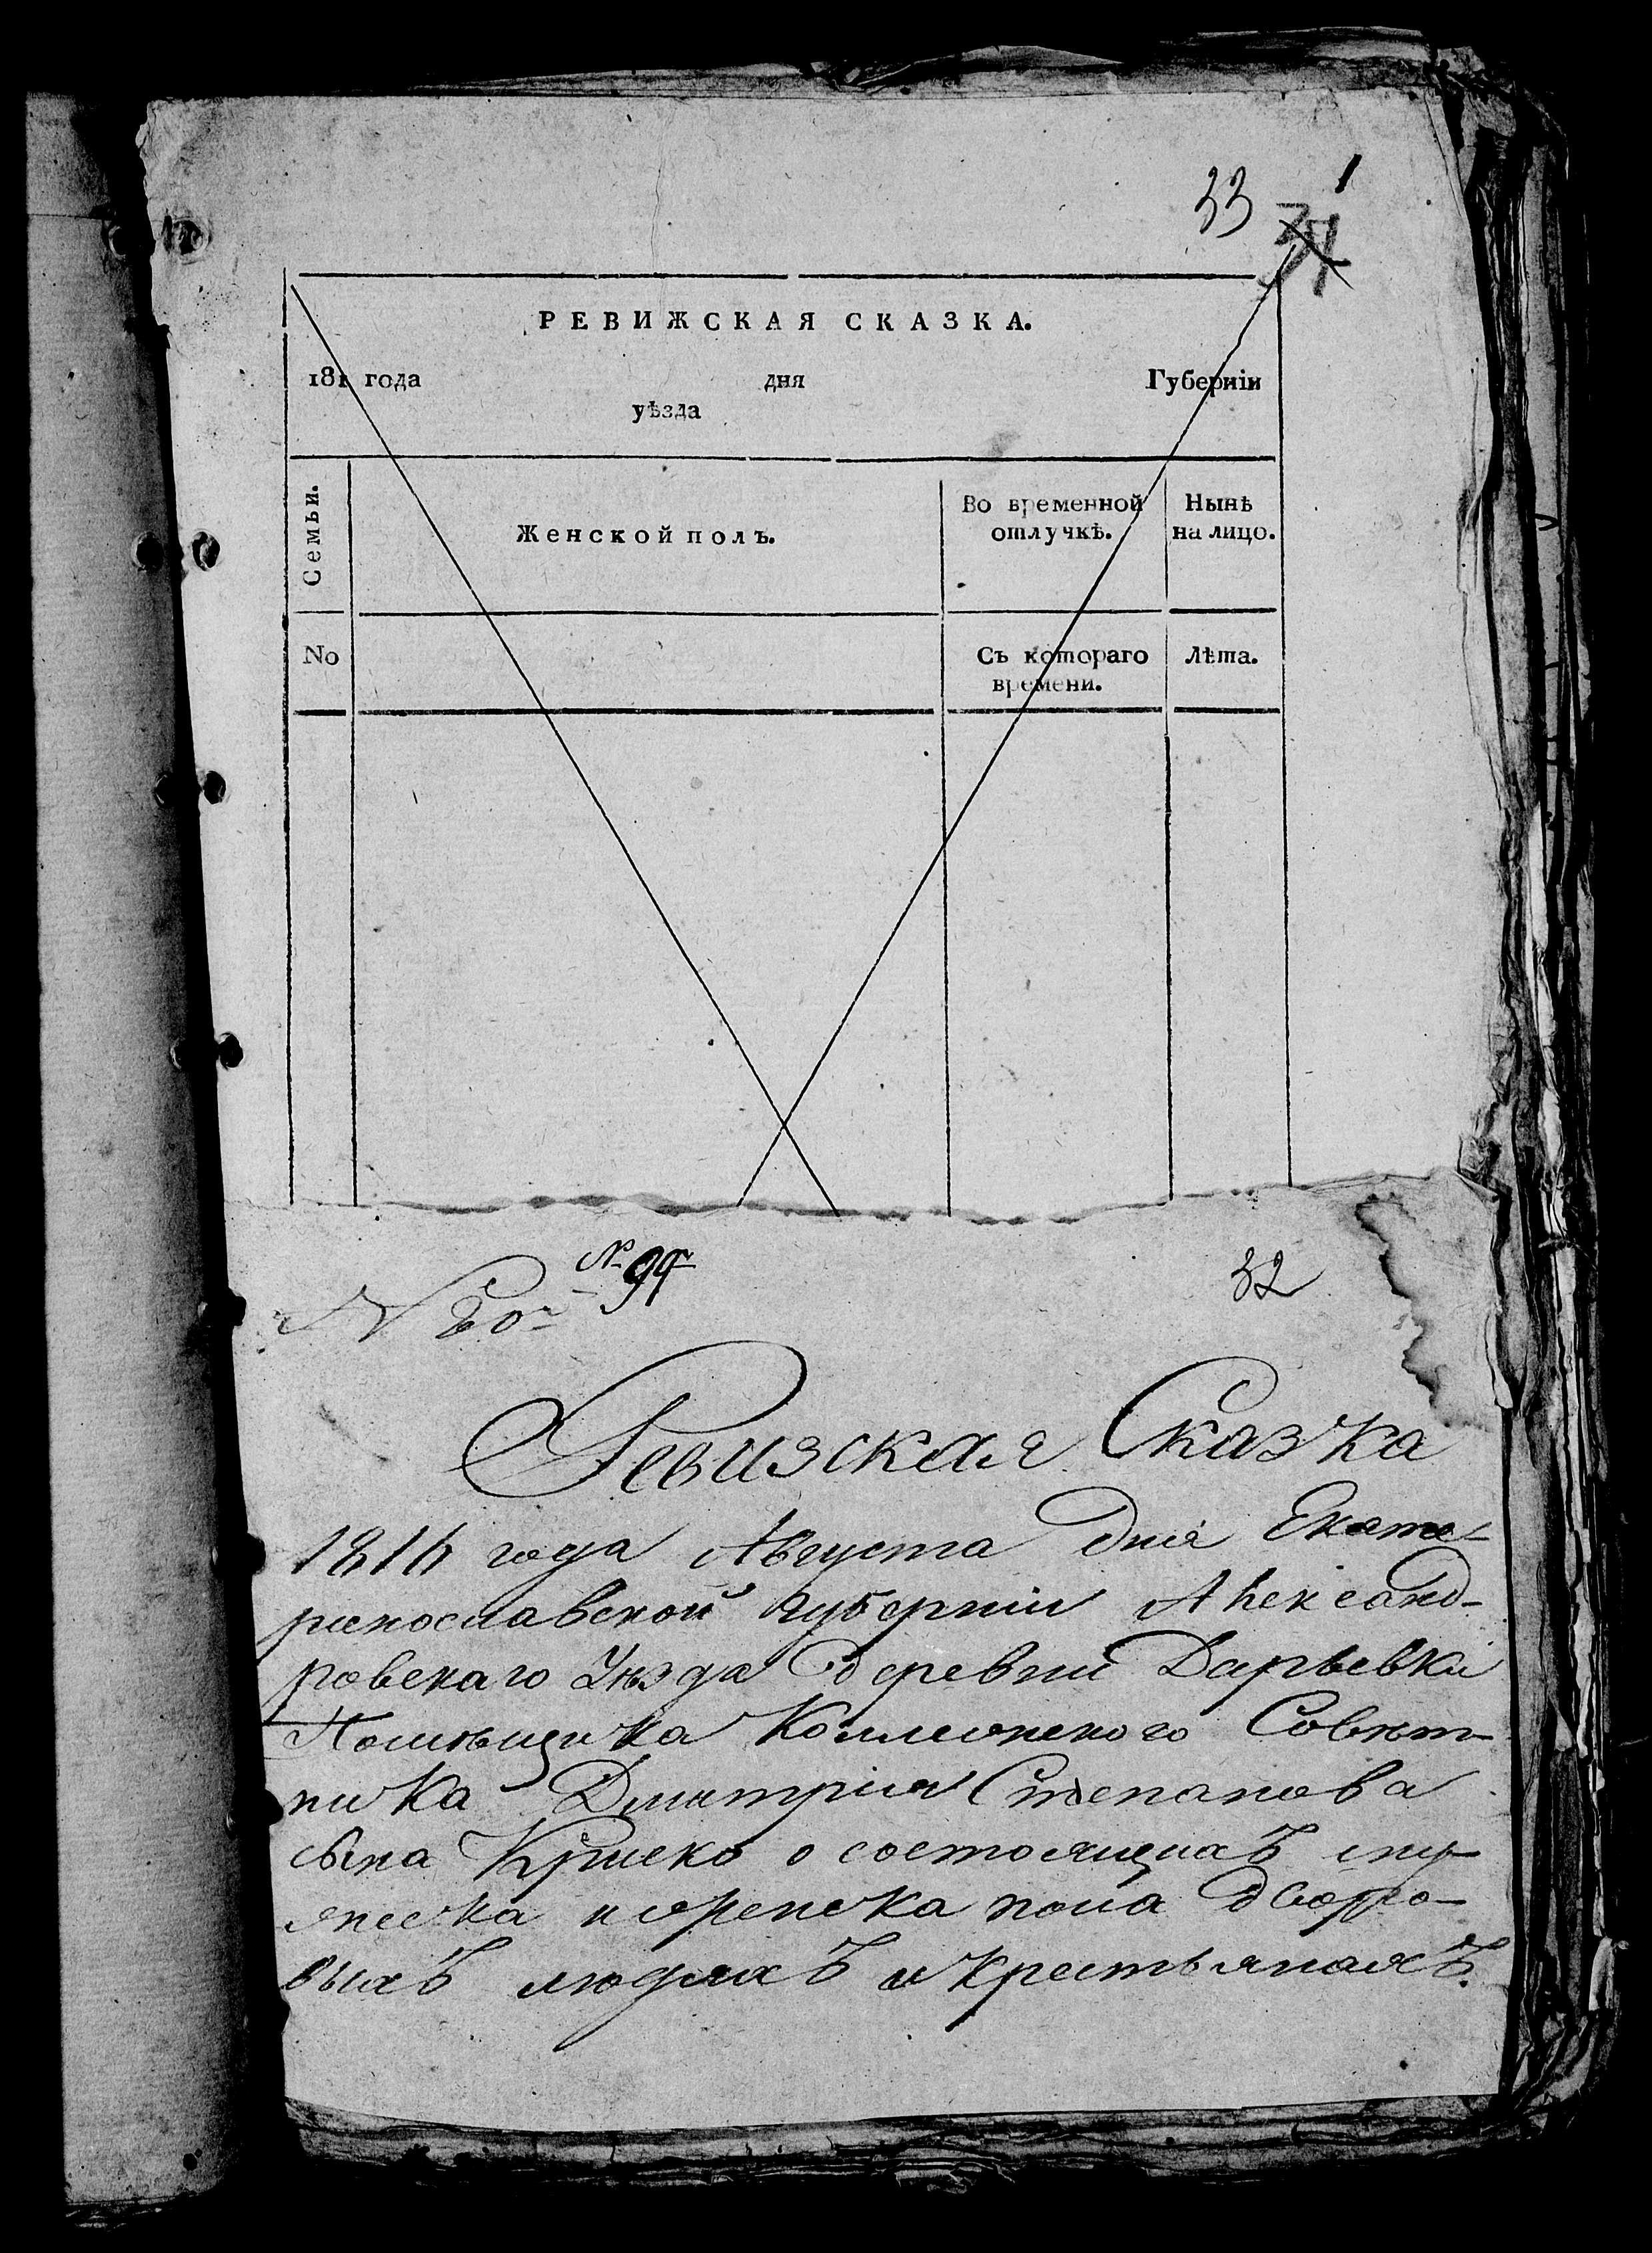 33
1
РЕВИЖСКАЯ СКАЗКА.
181 года дня Губерніи
уѣзда
Семьи.
Женской полъ.
Во временной отлучкѣ.
Нынѣ на лицо.
No
Съ котораго времени.
Лѣта.
32
Ревизская Сказка
года Августа дня Екате-
ринославской губерніи Александ-
ровскаго Уѣзда деревни Дарьевки
Помѣщика Коллежского Совѣт-
ника Дмитрія Степанова
сына о состоящихъ му-
жеска и женска пола дворо-
выхъ людяхъ и крестьянахъ.